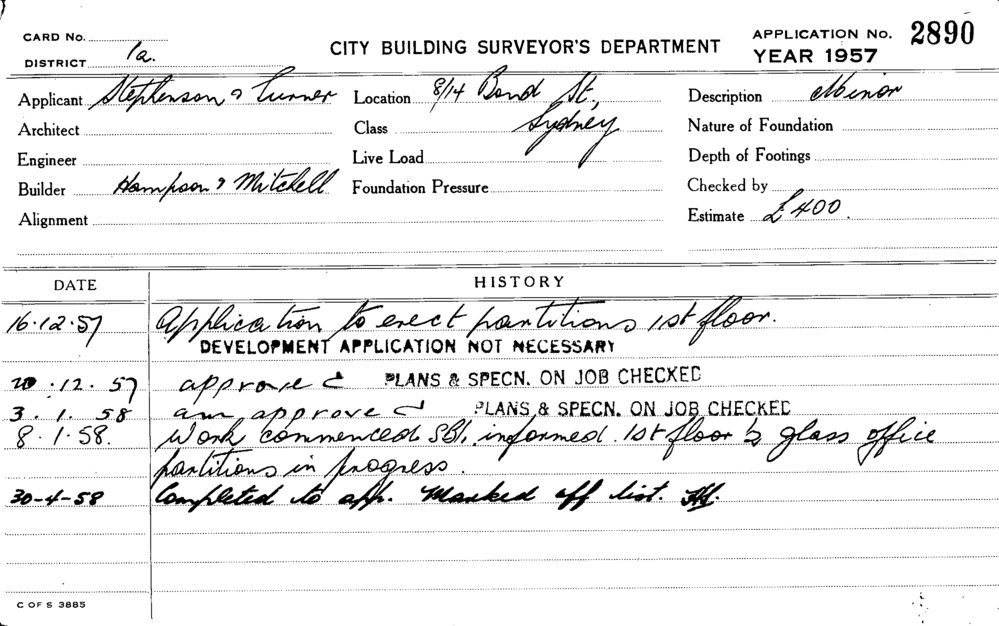 CARD No.
DISTRICT 1a.
CITY BUILDING SURVEYOR'S DEPARTMENT
APPLICATION No. 2890
YEAR 1957
Applicant Stephenson & Turner
Location 8/14 Bond St,
Sydney
Description Minor
Architect
Class
Nature of Foundation
Engineer
Live Load
Depth of Footings
Builder Hampson & Mitchell
Foundation Pressure
Checked by
Alignment
Estimate £400.
DATE HISTORY
16.12.57 Application to erect partitions 1st floor.
DEVELOPMENT APPLICATION NOT NECESSARY
20.12.57 approved PLANS & SPECN. ON JOB CHECKED
3.1.58 approved PLANS & SPECN. ON JOB CHECKED
8.1.58. Work commenced informed. 1st floor glass office
partitions in progress.
30-4-58 Completed to app. Marked off list.
C OF S 3885